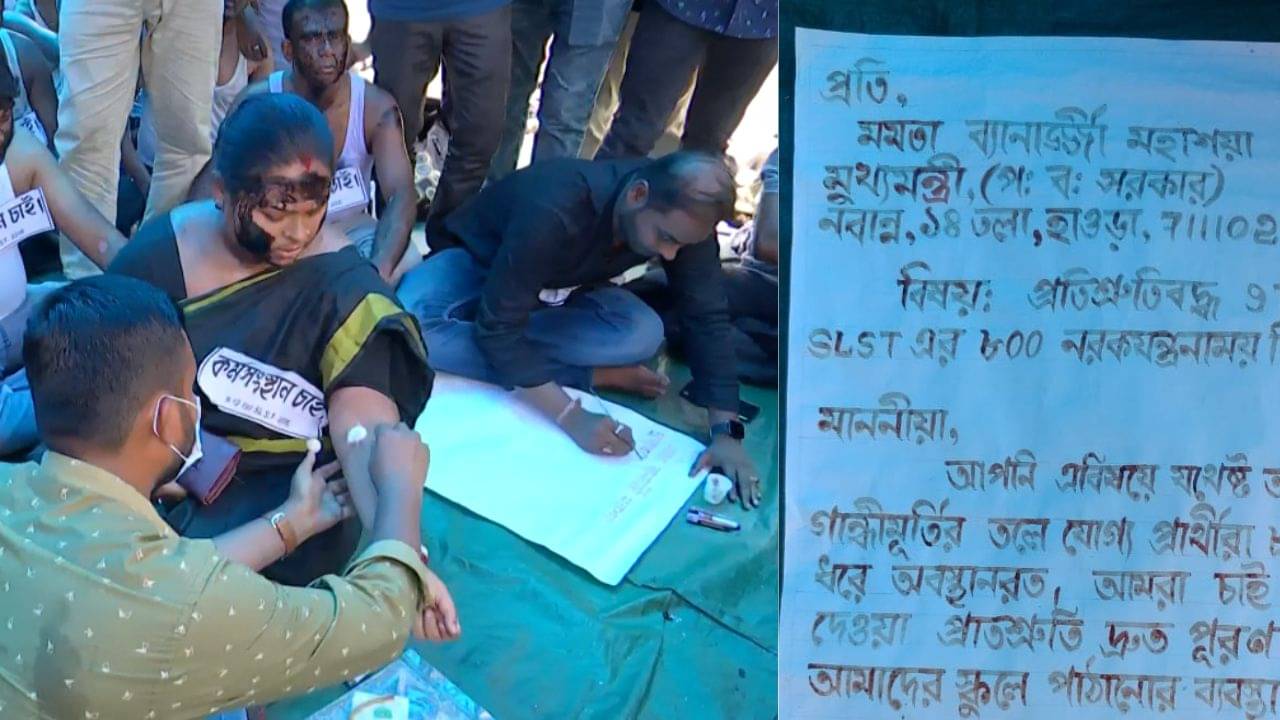 চাই।
চাই।
কর্মসংস্থান চাই
প্রতি,
মমতা ব্যানার্জ্জী মহাশয়া
মুখ্যমন্ত্রী,(পঃ বঃ সরকার)
নবান্ন,১৪ তলা,হাওড়া, 711102
বিষয়: প্রতিশ্রুতিবদ্ধ
SLST এর ৮০০ নরকযন্ত্রনাময়
মাননীয়া,
আপনি এবিষয়ে যথেষ্ট
গান্ধীমূর্তির তলে যোগ্য প্রার্থীরা
ধরে অবস্থানরত, আমরা চাই
দেওয়া প্রতিশ্রুতি দ্রুত পূরণ
আমাদের স্কুলে পাঠানোর ব্যবস্থা